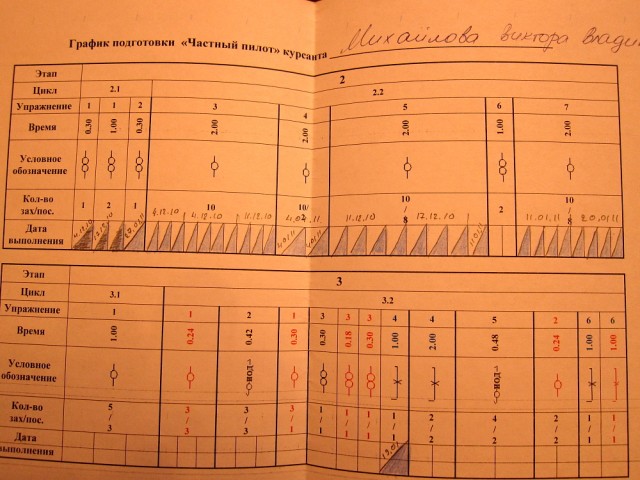 График подготовки «Частный пилот» курсанта Михайлова Виктора Влади
Этап 2
Цикл 2.1 2.2
Упражнение 1 1 2 3 4 5 6 7
Время 0.30 1.00 0.30 2.00 2.00 2.00 1.00 2.00
Условное
обозначение
Кол-во
зах/пос. 1 2 1 10 10/ 10 / 8 2 10 / 8
Дата
выполнения 4.12.10 4.12.10 11.12.10 11.12.10 12.12.10 11.01.11
Этап 3
Цикл 3.1 3.2
Упражнение 1 1 2 1 3 3 3 4 4 5 2 6 6
Время 1.00 0.24 0.42 0.30 0.30 0.18 0.30 1.00 2.00 0.48 0.24 1.00 1.00
Условное
обозначение под под
Кол-во
зах/пос. 5 / 3 3 / 3 3 / 3 3 / 1 1 / 1 1 / 1 1 / 1 1 / 1 2 / 2 4 / 2 2 / 2 1 / 1 1 / 1
Дата
выполнения